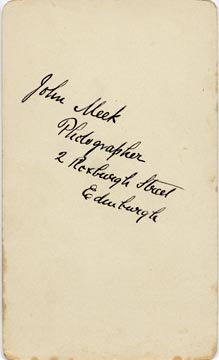 John Meek
Photographer
2 Roxburgh Street
Edinburgh